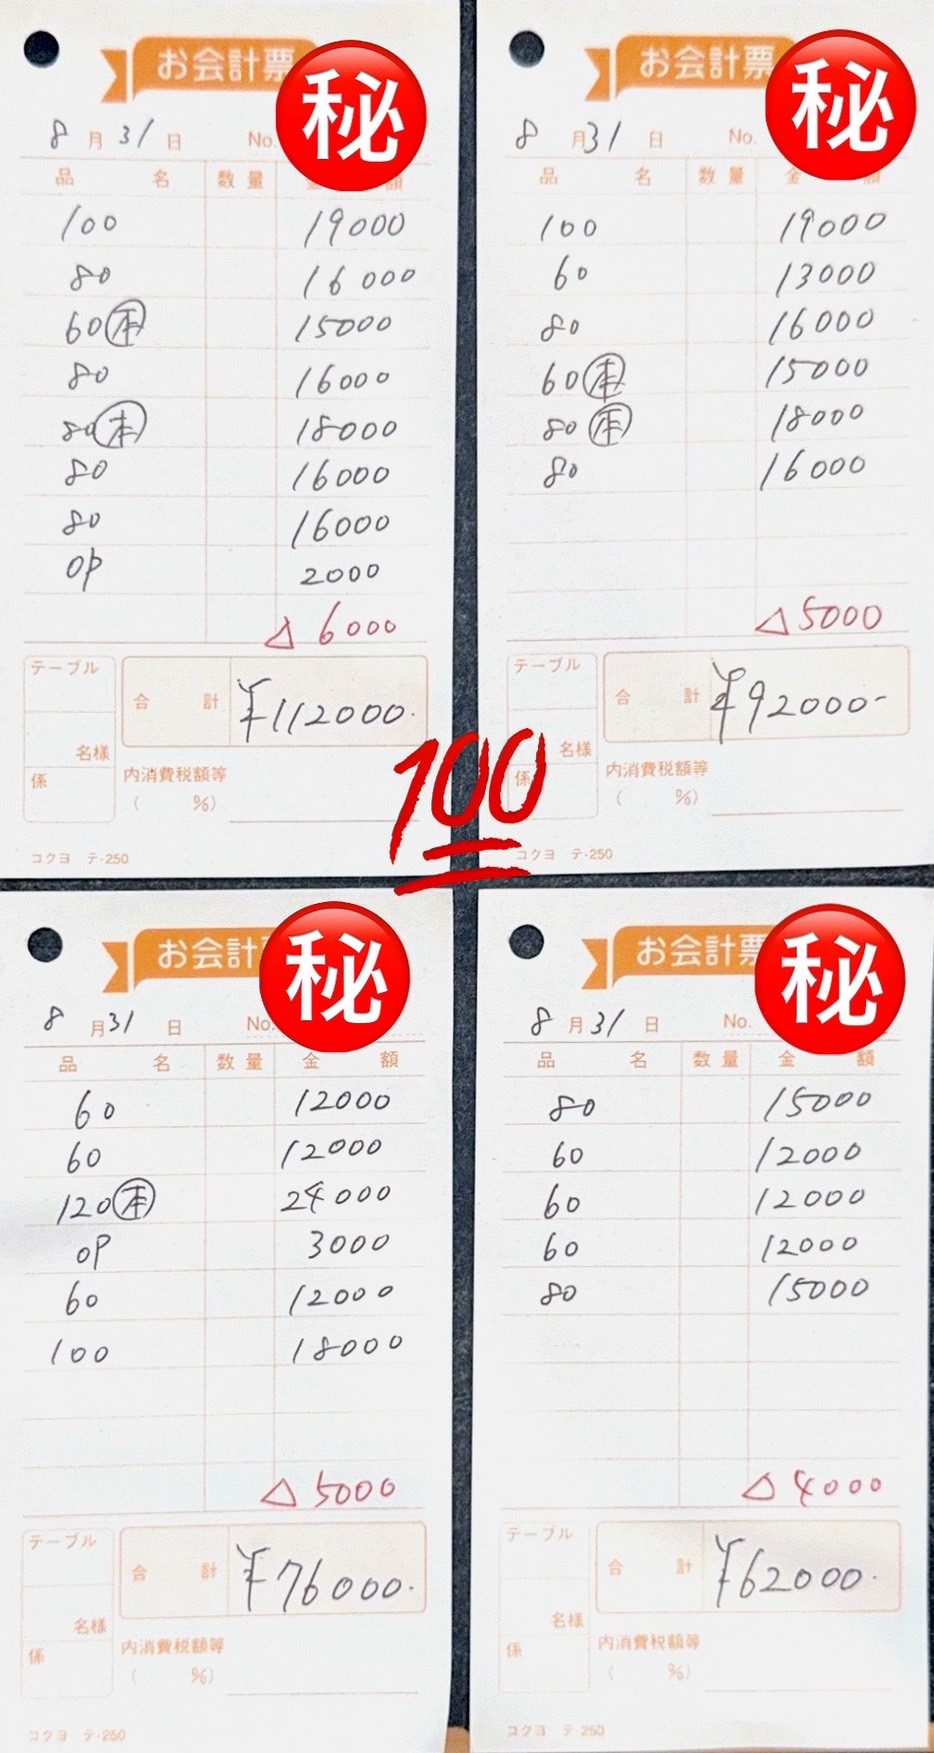 お会計票
㊙
8月31日 No.
品名 数量 金額
100 19000
80 16000
60㊍ 15000
80 16000
80㊍ 18000
80 16000
80 16000
OP 2000
△6000
テーブル
合計 ¥112000.
名様
係
内消費税額等
( %)
コクヨ テ-250
お会計票
㊙
8月31日 No.
品名 数量 金額
100 19000
60 13000
80 16000
60(本) 15000
80(本) 18000
80 16000
△5000
テーブル
合計 ¥92000-
名様
係
内消費税額等
( %)
コクヨ テ-250
100
お会計票
㊙
8月31日 No.
品名 数量 金額
60 12000
60 12000
120(本) 24000
OP 3000
60 12000
100 18000
△5000
テーブル
合計 ¥76000.
名様
係
内消費税額等
( %)
コクヨ テ-250
お会計票
㊙
8月31日 No.
品名 数量 金額
80 15000
60 12000
60 12000
60 12000
80 15000
△4000
テーブル
合計 ¥62000.
名様
係
内消費税額等
( %)
コクヨ テ-250